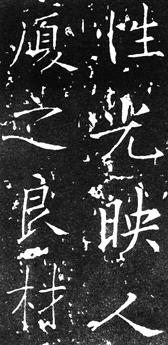 性光映人
之良材